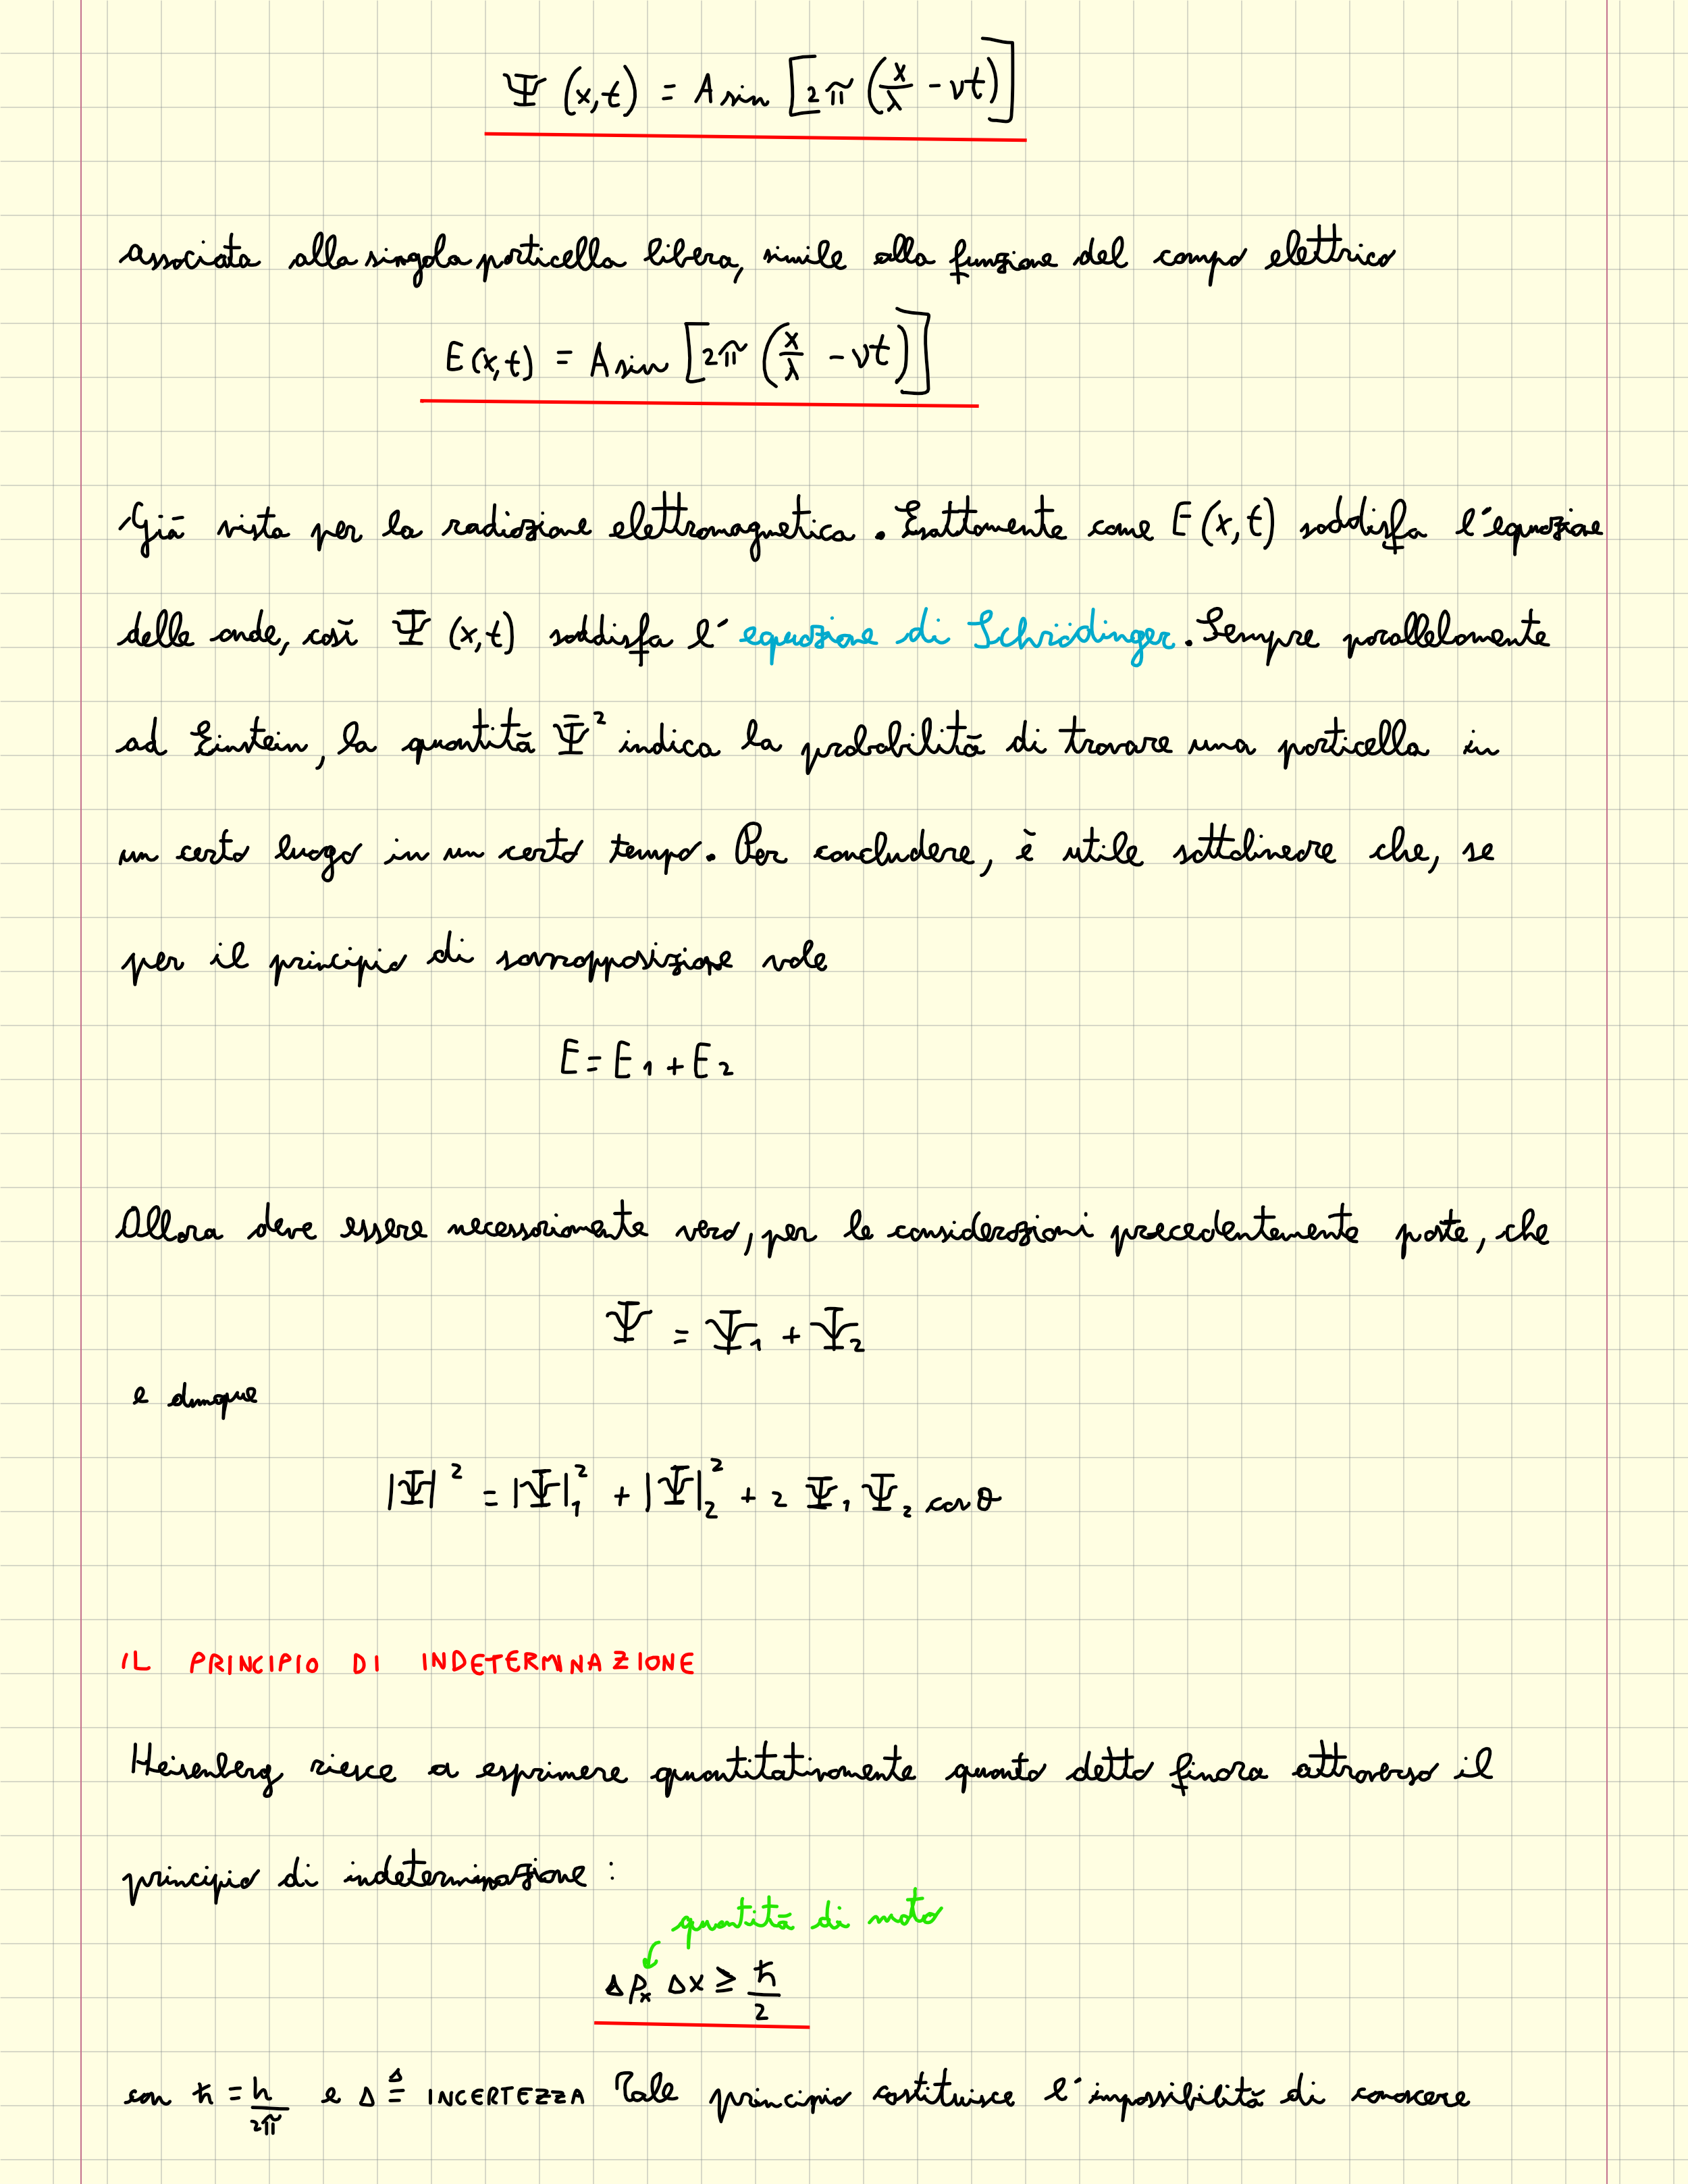 Ψ (x,t) = A sin [2π (x/λ - νt)]
associata alla singola particella libera, simile alla funzione del campo elettrico
E(x,t) = A sin [2π (x/λ - νt)]
Già vista per la radiazione elettromagnetica. Esattamente come E(x,t) soddisfa l'equazione
delle onde, così Ψ (x,t) soddisfa l'equazione di Schrödinger. Sempre parallelamente
ad Einstein, la quantità Ψ² indica la probabilità di trovare una particella in
un certo luogo in un certo tempo. Per concludere, è utile sottolineare che, se
per il principio di sovrapposizione vale
E = E₁ + E₂
Allora deve essere necessariamente vero, per le considerazioni precedentemente poste, che
Ψ = Ψ₁ + Ψ₂
e dunque
|Ψ|² = |Ψ|₁² + |Ψ|₂² + 2 Ψ₁ Ψ₂ cos θ
IL PRINCIPIO DI INDETERMINAZIONE
Heisenberg riesce a esprimere quantitativamente quanto detto finora attraverso il
principio di indeterminazione:
quantità di moto
Δpₓ Δx ≥ ℏ/2
con ℏ = h/2π e Δ ≜ INCERTEZZA Tale principio costituisce l'impossibilità di conoscere